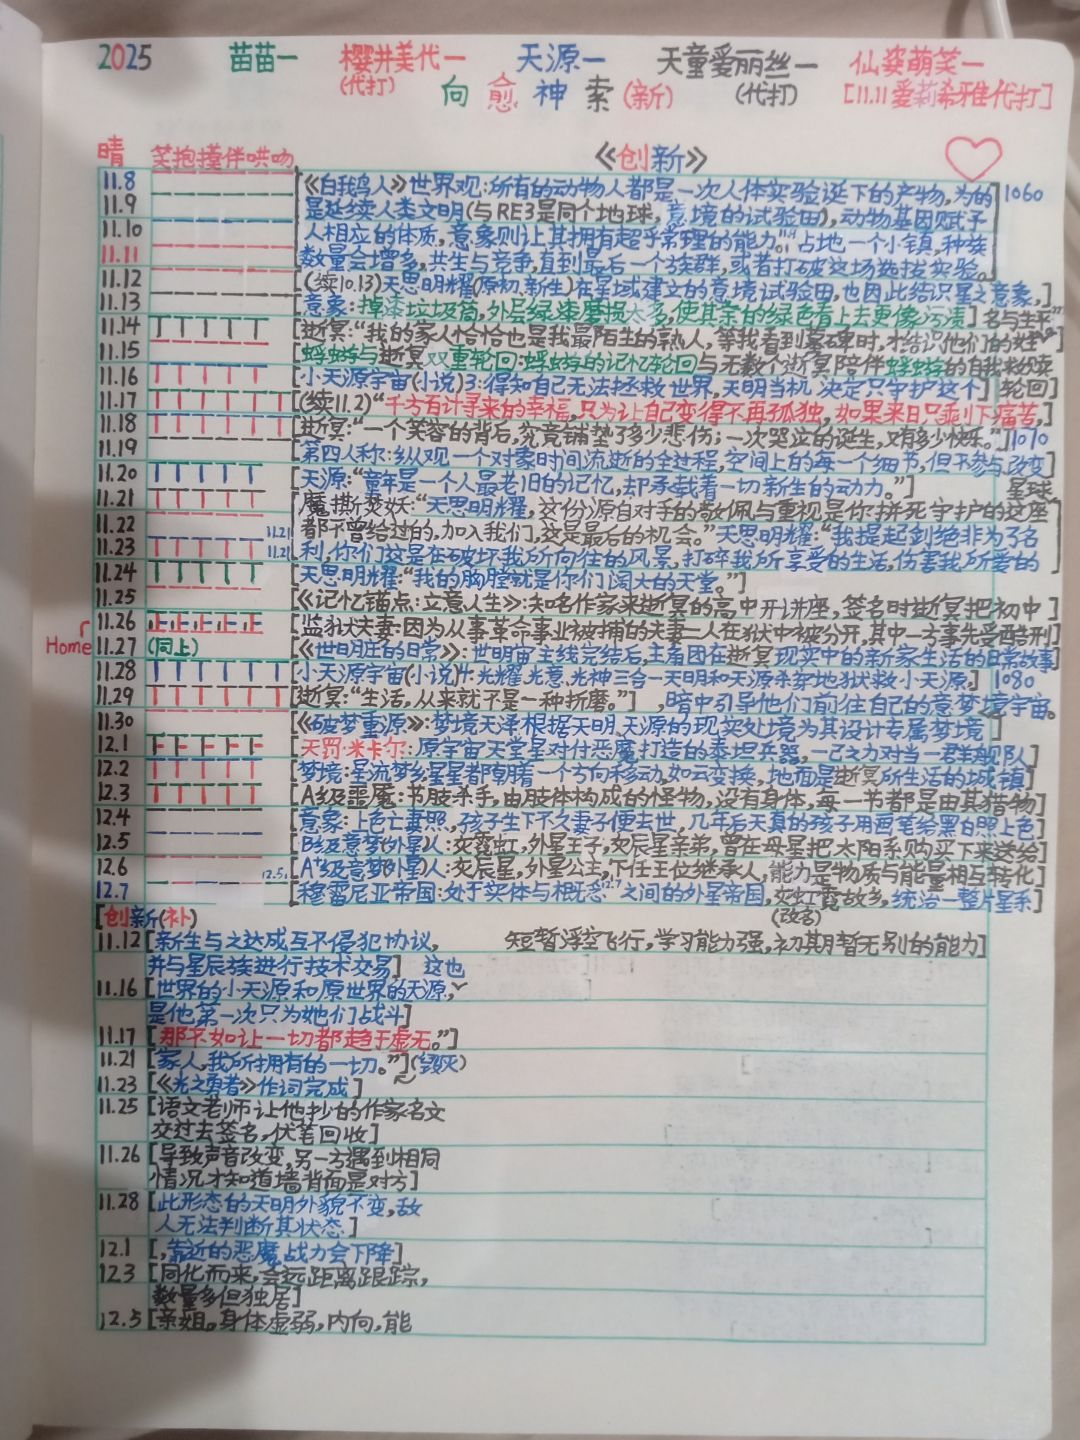 2025 苗苗一 樱井美代一 天源一 天童爱丽丝一 仙姿萌笑一
(代打) 向愈神索(新) (代打) [11.11爱莉希雅代打]
晴 笑抱摸伴哄吻 《创新》
11.8 [《白我鸟人》世界观:所有的动物人都是一次人体实验诞下的产物,为的 1060
11.9 是延续人类文明(与RE3是同个地球,意境的试验田),动物基因赋予
11.10 人相应的体质,意象则让其拥有超乎常理的能力。占地一个小镇,种族
11.11 数量会增多,共生与竞争,直到最后一个族群,或者打破这场选拔实验。]
11.12 [(续10.13)天思明耀(原初、新生)在星域建立的意境试验田,也因此结识星之意象,]
11.13 [意象:掉漆垃圾筒,外层绿漆磨损太多,使其余的绿色看上去更像污渍] 名与生平”
11.14 [逝冥:“我的家人恰恰也是我最陌生的熟人,等我看到墓碑时,才结识他们的姓
11.15 [蜉蝣与逝冥双重轮回:蜉蝣的记忆轮回与无数个逝冥陪伴蜉蝣的自我救赎
11.16 [小天源宇宙(小说)3:得知自己无法拯救世界,天明当机立决定只守护这个] 轮回]
11.17 [(续11.2)“千方百计寻来的幸福,只为让自己变得不再孤独,如果来日只剩下痛苦,]
11.18 [逝冥:“一个笑容的背后,究竟铺垫了多少悲伤;一次哭泣的诞生,又有多少快乐。”]1070
11.19 [第四人称:纵观一个对象时间流逝的全过程,空间上的每一个细节,但不参与改变]
11.20 [天源:“童年是一个人最老旧的记忆,却承载着一切新生的动力。”] 星球
11.21 [魔撕焚妖:“天思明耀,这份源自对手的敬佩与重视是你拼死守护的这座
11.22 都不曾给过的,加入我们,这是最后的机会。”天思明耀:“我提起剑绝非为了名
11.21
11.23 利,你们这是在破坏我所向往的风景,打碎我所享受的生活,伤害我所爱的]
11.21
11.24 [天思明耀:“我的胸膛就是你们阔大的天堂。”]
11.25 [《记忆锚点:立意人生》:知名作家来逝冥的高中开讲座,签名时逝冥把初中]
11.26 正正正正正 [监狱夫妻:因为从事革命事业被捕的夫妻二人在狱中被分开,其中一方事先受酷刑]
Home 11.27 (同上) [《世明庄的日常》:世明宙主线完结后,主角团在逝冥现实中的新家生活的日常故事]
11.28 [小天源宇宙(小说)4:光耀、光意、光神三合一天明和天源杀穿地狱救小天源] 1080
11.29 [逝冥:“生活,从来就不是一种折磨。”] ,暗中引导他们前往自己的意梦境宇宙。
11.30 [《破梦重源》:梦境天泽根据天明、天源的现实处境为其设计专属梦境]
12.1 [天罚·米卡尔:原宇宙天堂星对付恶魔打造的泰坦兵器,一己之力对当一群舰队]
12.2 [梦境:星流梦乡,星星都朝着一个方向移动,如云变换,地面是逝冥所生活的城镇]
12.3 [A级噩魇:节肢杀手,由肢体构成的怪物,没有身体,每一节都是由其猎物]
12.4 [意象:上色亡妻照,孩子生下不久妻子便去世,几年后天真的孩子用画笔给黑白照上色]
12.5 [B级意梦(外星)人:炎霓虹,外星王子,炎辰星亲弟,曾在母星把太阳系购买下来送给]
12.6 12.5 [A+级意梦(外星)人:炎辰星,外星公主,下任王位继承人,能力是物质与能量相互转化]
12.7 [穆雷尼亚帝国:处于实体与概念12.7之间的外星帝国,炎虹霓故乡,统治一整片星系]
[创新(补) (改名)
11.12 [新生与之达成互不侵犯协议, 短暂浮空飞行,学习能力强,初期暂无别的能力]
并与星辰族进行技术交易] 这也
11.16 [世界的小天源和原世界的天源,
是他第一次只为她们战斗]
11.17 [那不如让一切都趋于虚无。”]
11.21 [家人,我所拥有的一切。”](毁灭)
11.23 [《光之勇者》作词完成]
11.25 [语文老师让他抄的作家名文
交过去签名,伏笔回收]
11.26 [导致声音改变,另一方遇到相同
情况才知道墙背面是对方]
11.28 [此形态的天明外貌不变,敌
人无法判断其状态]
12.1 [,靠近的恶魔战力会下降]
12.3 [同化而来,会远距离跟踪,
数量多但独居]
12.5 [亲姐。身体虚弱,内向,能